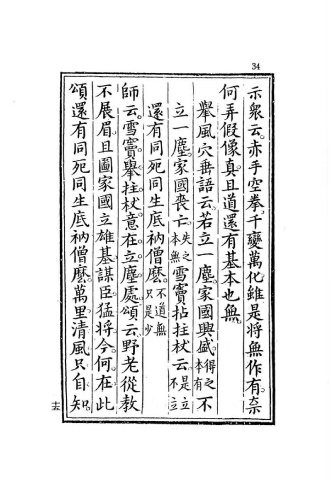 34
示衆云。赤手空拳。千變萬化。雖是將無作有。奈
何弄假像真。且道還有基本也無。
舉風穴垂語云。若立一塵。家國興盛。得之本有不
立一塵。家國喪亡。失之本無雪竇拈拄杖云。不是立
還有同死同生底衲僧麼。不道無只是少
師云。雪竇舉拄杖。意在立塵處。頌云。野老從教
不展眉。且圖家國立雄基。謀臣猛將今何在。此
頌還有同死同生底衲僧麼。萬里清風只自知。